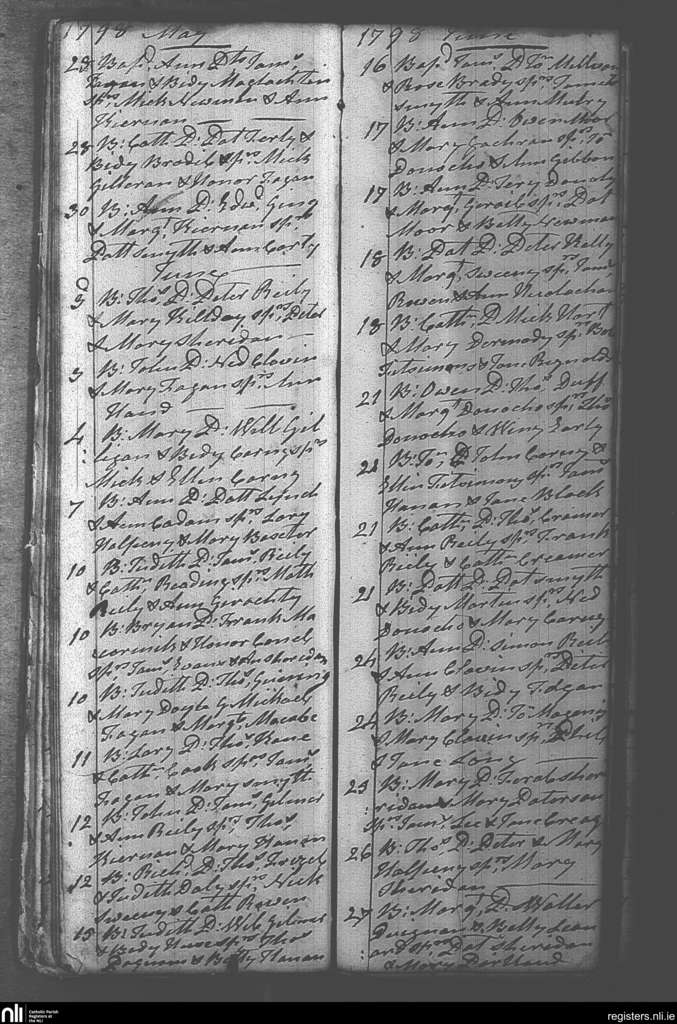 1798 May
28 Bapd Ann Dtr Jams
Fagan & Bidy Maglachlen
sprs Mick Newman & Ann
Kiernan
28 B: Cath D: Pat Ferly &
Bidy Bradel & sprs Mick
Gilleran & Honor Fagan
30 B: Ann D: Edwd
& Margt Kiernan sprs
Patt smyth & Ann Carty
June
3 B: Thos D: Peter Reily
& Mary Kilday sprs Peter
& Mary Sheridan
3 B: John D: Ned Clavin
& Mary Fagan sprs Ann
Hand
4 B: Mary D: Will Gil
: legan & Bidy Carny sprs
Mick & Ellin Carny
7 B: Ann D: Patt Lynch
& Ann Cadam sprs Lary
Halfpeny & Mary Baxter
10 B: Judith D: Jams Reily
& Cathn Reading sprs Math
Reily & Ann Geraghty
10 B: Bryan D: Frank Ma
cormick & Honor
sprs Jams Evans & An sheridan
10 B: Judith D: Thos
& Mary Doyle G Michael
Fagan & Margt Macabe
11 B: Lary D: Thos Kane
& Cathn Cook sprs Jams
Fagan & Mary smyth
12 B: John D: Jams Gilmer
& Ann Reily sprs Thos
Kiernan & Mary Hanan
12 B: Richd D: Thos
& Judith Daly sprs Nick
Sweeny & Cath Rowen
15 B: Judith D: Wm Gilmer
& Bidy sprs Thos
& Betty Hanan
1798 June
16 Bapd Jams D: Jon
& Rose Brady sprs James
smyth & Ann Mulry
17 B: Ann D: Owen Moor
& Mary Cochran sprs Jo
Donocho & Ann Gibbon
17 B: Ann D: Tery Donocho
& Margt sprs Pat
Moor & Betty Newman
18 B: Pat D: Peter Kelly
& Margt Sweeny sprs Jams
Rowen & Ann
18 B: Cathn D: Mick Hart
& Mary Dermody sprs Bar
Fitsimons & Jane Reynolds
21 B: Owen D: Thos Duff
& Margt Donocho sprs Thos
Donocho & Winy Farly
21 B: Jn D: John Carny &
Ellin Fitsimons sprs Jams
Hanan & Jane Black
21 B: Cathn D: Thos Cramer
& Ann Reily sprs Frank
Reily & Cathn Creamer
21 B: Patt D: Pat smyth
& Bidy Martin sprs Ned
Donocho & Mary Carny
24 B: Ann D: Simon Reily
& Ann Clavin sprs Peter
Reily & Bidy Fagan
24 B: Mary D: Jo
& Mary Clavin sprs Phil
& Jane Long
25 B: Mary D: Feral sher
: ridan & Mary Paterson
sprs Jams Lee & Jane
26 B: Thos D: Peter & Mary
Halfpeny sprs Mary
Sheridan
27 B: Margt D: Walter
Duignan & Betty Lean
: ard sprs Pat sheridan
& Mary
nli
Catholic Parish
Registers at
the NLI
registers.nli.ie